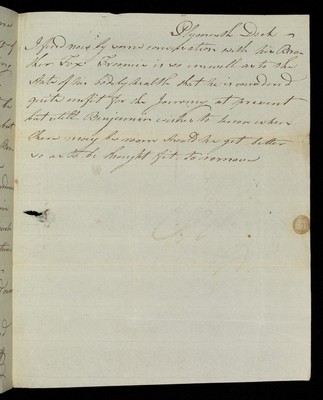 Plymouth Dock
I find now by some conversation with his Bro
ther Fox Francis is so unwell as to the
state of his bodily health that he is considered
quite unfit for the Journey at present
but still Benjamin wishes to know when
there may be room should he get better
so as to be thought fit to remove